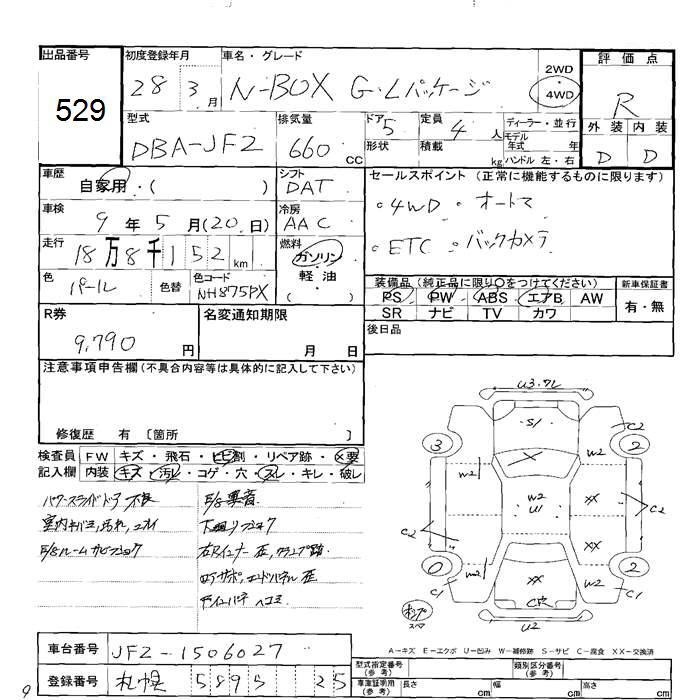 出品番号
529
初度登録年月
28 3月
車名・グレード
N-BOX G・Lパッケージ
2WD
4WD
評価点
R
外装 内装
D D
型式
DBA-JF2
排気量
660 cc
ドア 5
形状
定員 4 人
積載 kg
ディーラー・並行
モデル年式 年
ハンドル 左・右
車歴
自家用・( )
シフト
DAT
セールスポイント (正常に機能するものに限ります)
・4WD ・オートマ
・ETC ・バックカメラ
車検
9年5月(20日)
冷房
AAC
走行
18万8千152km
燃料
ガソリン・軽油
色
パール
色替
色コード
NH875PX
装備品 (純正品に限り○をつけてください)
PS PW ABS エアB AW
SR ナビ TV カワ
新車保証書
有・無
R券
9,790 円
名変通知期限
月 日
後日品
注意事項申告欄(不具合内容等は具体的に記入して下さい)
修復歴 有 〔箇所 〕
検査員記入欄
FW キズ・飛石・ヒビ割・リペア跡・×要
内装 キズ・汚レ・コゲ・穴・スレ・キレ・破レ
パワースライドドア不良
F/S異音
下廻りフショク
U3.7L
S1
X
3
2
C2
W2
W2
W2
U1
XX
C2
C2
XX
0
2
W2
W2
XX
C穴
C1
C1
U2
A−キズ E−エクボ U−凹み W−補修跡 S−サビ C−腐食 XX−交換済
車台番号
JF2-1506027
登録番号
札幌 589 S 25
型式指定番号(参考)
類別区分番号(参考)
車庫証明用(参考)
長さ cm
幅 cm
高さ cm
9